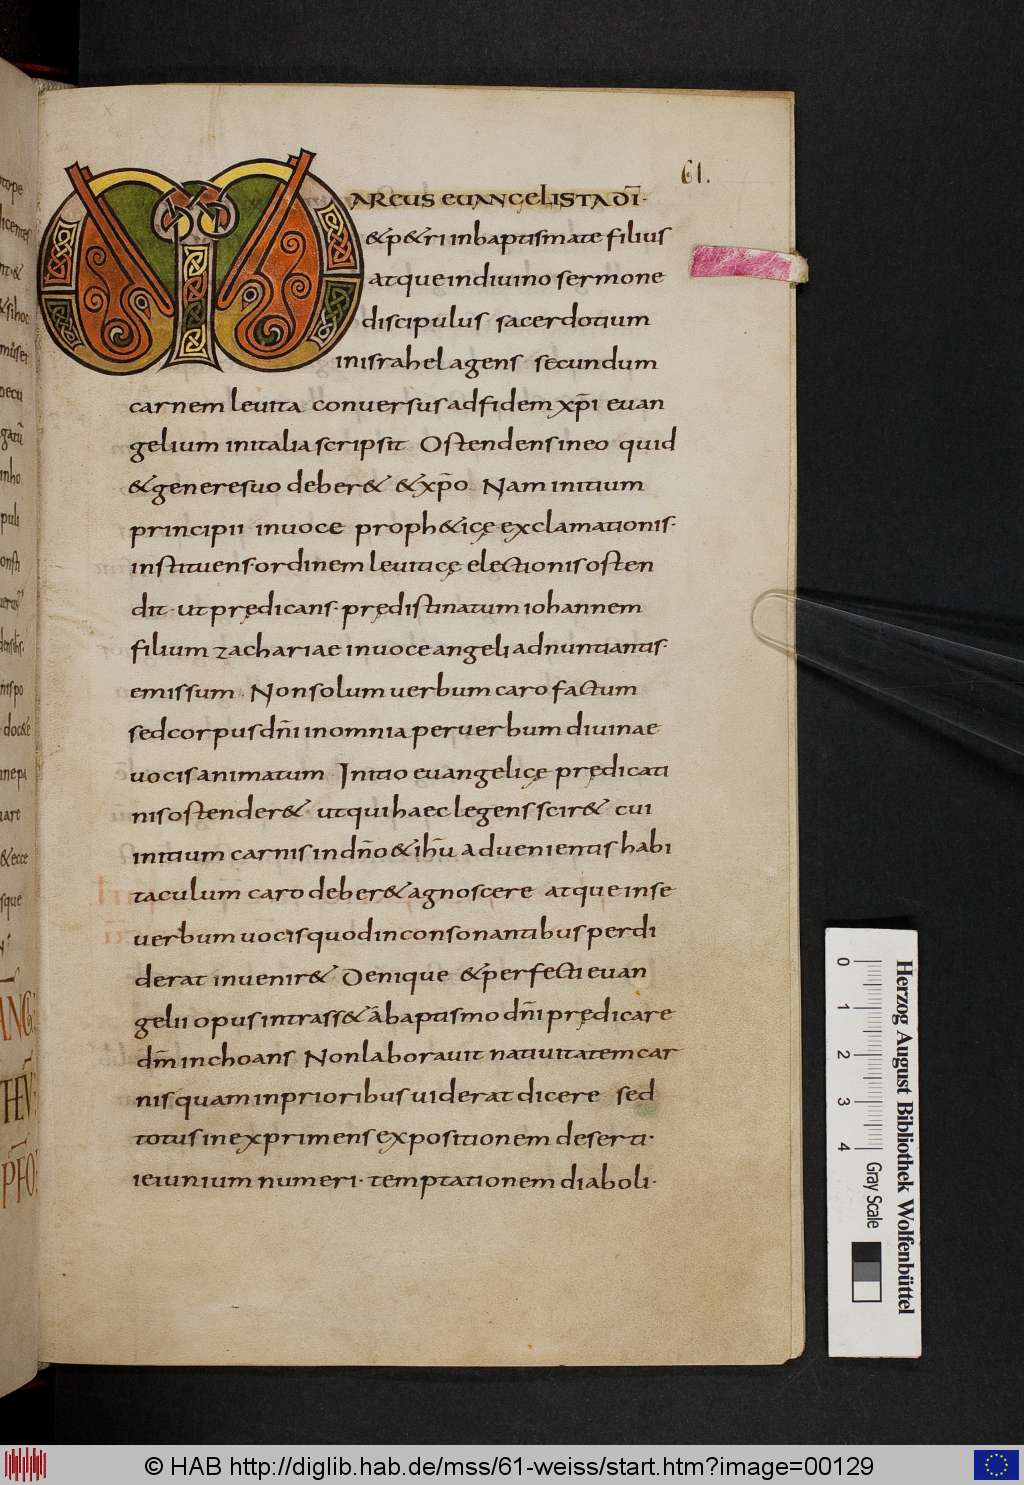 61.
MARCUS EUANGELISTA DI·
&p&ri in baptismate filius
atque in diuino sermone
discipulus sacerdotium
in israhel agens secundum
carnem leuita conuersus ad fidem xp̄i euan
gelium in italia scripsit Ostendens in eo quid
& generi suo deber& & xp̄o Nam initium
principii in uoce proph&icę exclamationis·
instituens· ordinem leuiticę electionis osten
dit· ut prędicans· prędistinatum iohannem
filium zachariae in uoce angeli adnuntiantis·
emissum· Non solum uerbum caro factum
sed corpus dn̄i in omnia per uerbum diuinae
uocis animatum· Initio euangelicę prędicati
nis ostender& ut qui haec legens scir& cui
initium carnis in dn̄o & ih̄u aduenientis habi
taculum caro deber& agnoscere atque in se
uerbum uocis quod in consonantibus perdi
derat inuenir& Denique & perfecti euan
gelii opus intrass& & a baptismo dn̄i prędicare
dm̄ inchoans Non laborauit natiuitatem car
nis quam in prioribus uiderat dicere sed
totus in exprimens expositionem deserti·
ieiunium numeri· temptationem diaboli·
0 1 2 3 4
Gray Scale
Herzog August Bibliothek Wolfenbüttel
© HAB http://diglib.hab.de/mss/61-weiss/start.htm?image=00129